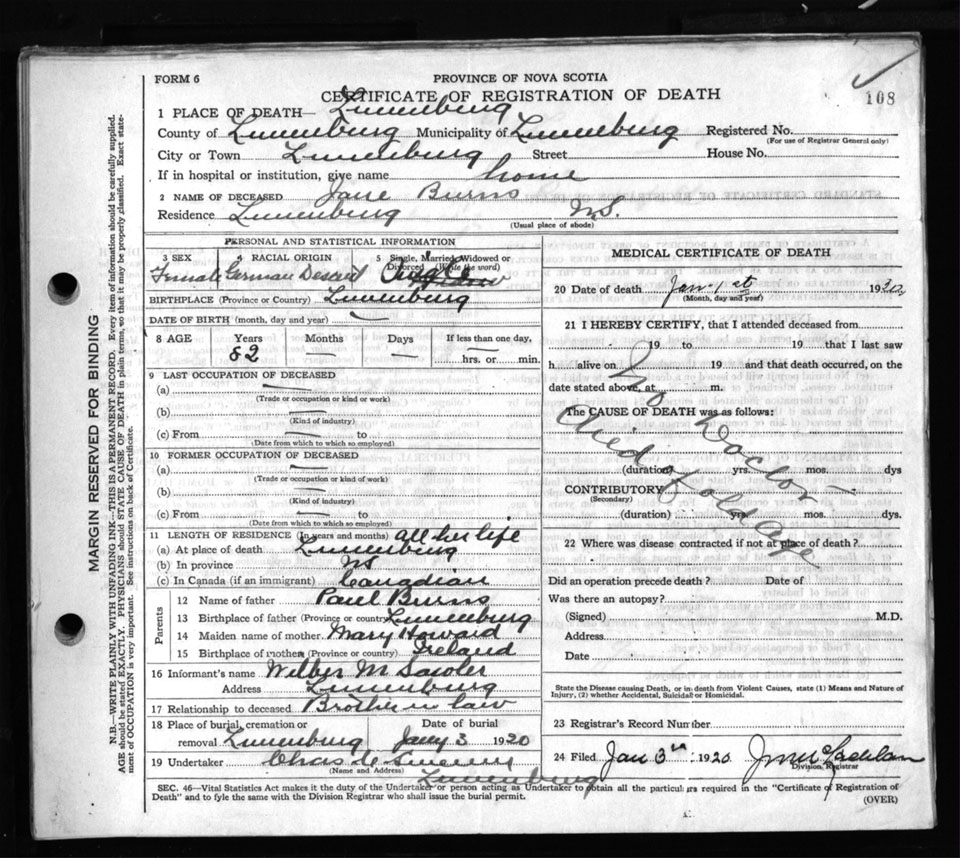 FORM 6
PROVINCE OF NOVA SCOTIA
CERTIFICATE OF REGISTRATION OF DEATH
108
1 PLACE OF DEATH— Lunenburg
County of Lunenburg Municipality of Lunenburg Registered No.
(For use of Registrar General only)
City or Town Lunenburg Street House No.
If in hospital or institution, give name home
2 NAME OF DECEASED Jane Burns
Residence Lunenburg N.S.
(Usual place of abode)
PERSONAL AND STATISTICAL INFORMATION
3 SEX 4 RACIAL ORIGIN 5 Single, Married, Widowed or Divorced (Write the word)
Female German Descent Single
BIRTHPLACE (Province or Country) Lunenburg
DATE OF BIRTH (month, day and year) —
8 AGE Years Months Days If less than one day,
82 — — hrs. or min.
9 LAST OCCUPATION OF DECEASED
(a) —
(Trade or occupation or kind of work)
(b) —
(Kind of industry)
(c) From — to
(Date from which to which so employed)
10 FORMER OCCUPATION OF DECEASED
(a) —
(Trade or occupation or kind of work)
(b) —
(Kind of industry)
(c) From — to
(Date from which to which so employed)
11 LENGTH OF RESIDENCE (In years and months) all her life
(a) At place of death Lunenburg
(b) In province NS
(c) In Canada (if an immigrant) Canadian
Parents
12 Name of father Paul Burns
13 Birthplace of father (Province or country) Lunenburg
14 Maiden name of mother Mary Howard
15 Birthplace of mother (Province or country) Ireland
16 Informant's name Wilber M Sawler
Address Lunenburg
17 Relationship to deceased Brother in law
18 Place of burial, cremation or Date of burial
removal Lunenburg Jany 3 1920
19 Undertaker Chas
(Name and Address)
Lunenburg
MEDICAL CERTIFICATE OF DEATH
20 Date of death Jan. 1st 1920
(Month, day and year)
21 I HEREBY CERTIFY, that I attended deceased from
19 to 19 that I last saw
h alive on 19 and that death occurred, on the
date stated above, at m.
The CAUSE OF DEATH was as follows:
No Doctor —
died of old Age
(duration) yrs. mos. dys
CONTRIBUTORY
(Secondary)
(duration) yrs mos. dys.
22 Where was disease contracted if not at place of death?
Did an operation precede death? Date of
Was there an autopsy?
(Signed) M.D.
Address
Date
State the Disease causing Death, or in death from Violent Causes, state (1) Means and Nature of
Injury, (2) whether Accidental, Suicidal or Homicidal.
23 Registrar's Record Number
24 Filed Jan 3rd 1920 McLachlan
Division Registrar
SEC. 46—Vital Statistics Act makes it the duty of the Undertaker or person acting as Undertaker to obtain all the particulars required in the "Certificate of Registration of
Death" and to fyle the same with the Division Registrar who shall issue the burial permit.
(OVER)
MARGIN RESERVED FOR BINDING
N.B.—WRITE PLAINLY WITH UNFADING INK—THIS IS A PERMANENT RECORD. Every item of information should be carefully supplied.
AGE should be stated EXACTLY. PHYSICIANS should STATE CAUSE OF DEATH in plain terms, so that it may be properly classified. Exact state-
ment of OCCUPATION is very important. See instructions on back of Certificate.